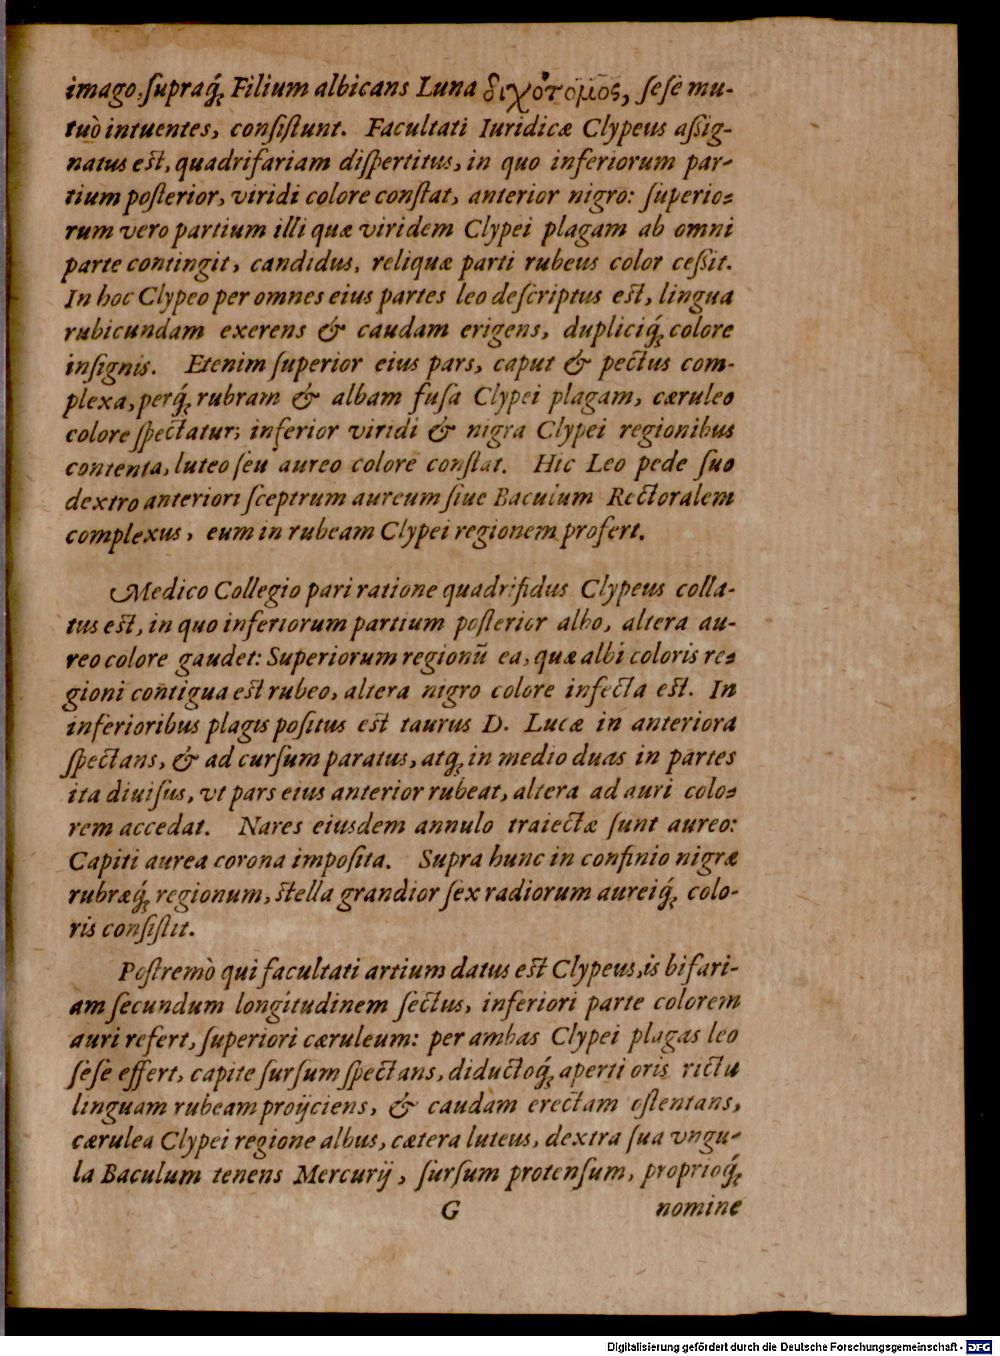 imago, supraq́; Filium albicans Luna διχότομος, sese mu-
tuò intuentes, consistunt. Facultati Iuridicæ Clypeus assig-
natus est, quadrifariam dispertitus, in quo inferiorum par-
tium posterior, viridi colore constat, anterior nigro: superio-
rum vero partium illi quæ viridem Clypei plagam ab omni
parte contingit, candidus, reliquæ parti rubeus color cessit.
In hoc Clypeo per omnes eius partes leo descriptus est, lingua
rubicundam exerens & caudam erigens, dupliciq́; colore
insignis. Etenim superior eius pars, caput & pectus com-
plexa, perq́; rubram & albam fusa Clypei plagam, cæruleo
colore spectatur; inferior viridi & nigra Clypei regionibus
contenta, luteo seu aureo colore constat. Hic Leo pede suo
dextro anteriori sceptrum aureum siue Baculum Rectoralem
complexus, eum in rubeam Clypei regionem profert.
Medico Collegio pari ratione quadrifidus Clypeus colla-
tus est, in quo inferiorum partium posterior albo, altera au-
reo colore gaudet: Superiorum regionũ ea, quæ albi coloris re-
gioni contigua est rubeo, altera nigro colore infecta est. In
inferioribus plagis positus est taurus D. Lucæ in anteriora
spectans, & ad cursum paratus, atq; in medio duas in partes
ita diuisus, vt pars eius anterior rubeat, altera ad auri colo-
rem accedat. Nares eiusdem annulo traiectæ sunt aureo:
Capiti aurea corona imposita. Supra hunc in confinio nigræ
rubræq́; regionum, stella grandior sex radiorum aureiq́; colo-
ris consistit.
Postremò qui facultati artium datus est Clypeus, is bifari-
am secundum longitudinem sectus, inferiori parte colorem
auri refert, superiori cæruleum: per ambas Clypei plagas leo
sese effert, capite sursum spectans, diductoq́; aperti oris rictu
linguam rubeam proijciens, & caudam erectam ostentans,
cærulea Clypei regione albus, cætera luteus, dextra sua vngu-
la Baculum tenens Mercurij, sursum protensum, proprioq́;
G nomine
Digitalisierung gefördert durch die Deutsche Forschungsgemeinschaft - DFG